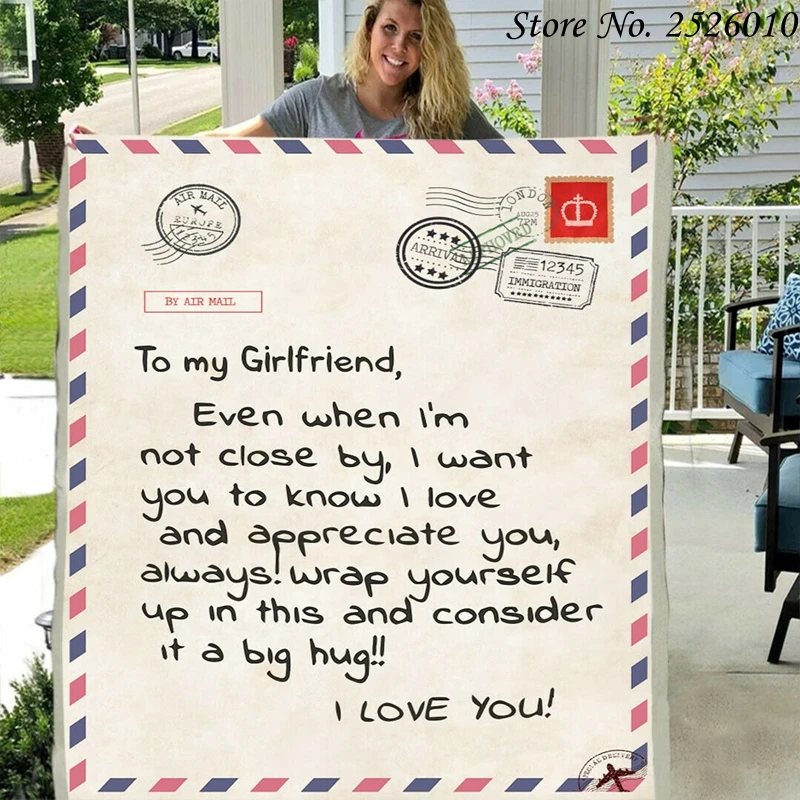 Store No. 2526010
AIR MAIL
EUROPE
LONDON
AUG25
7PM
ARRIVAL
12345
IMMIGRATION
BY AIR MAIL
To my Girlfriend,
Even when I'm
not close by, I want
you to know I love
and appreciate you,
always! wrap yourself
up in this and consider
it a big hug!!
I LOVE YOU!
SPECIAL DELIVERY